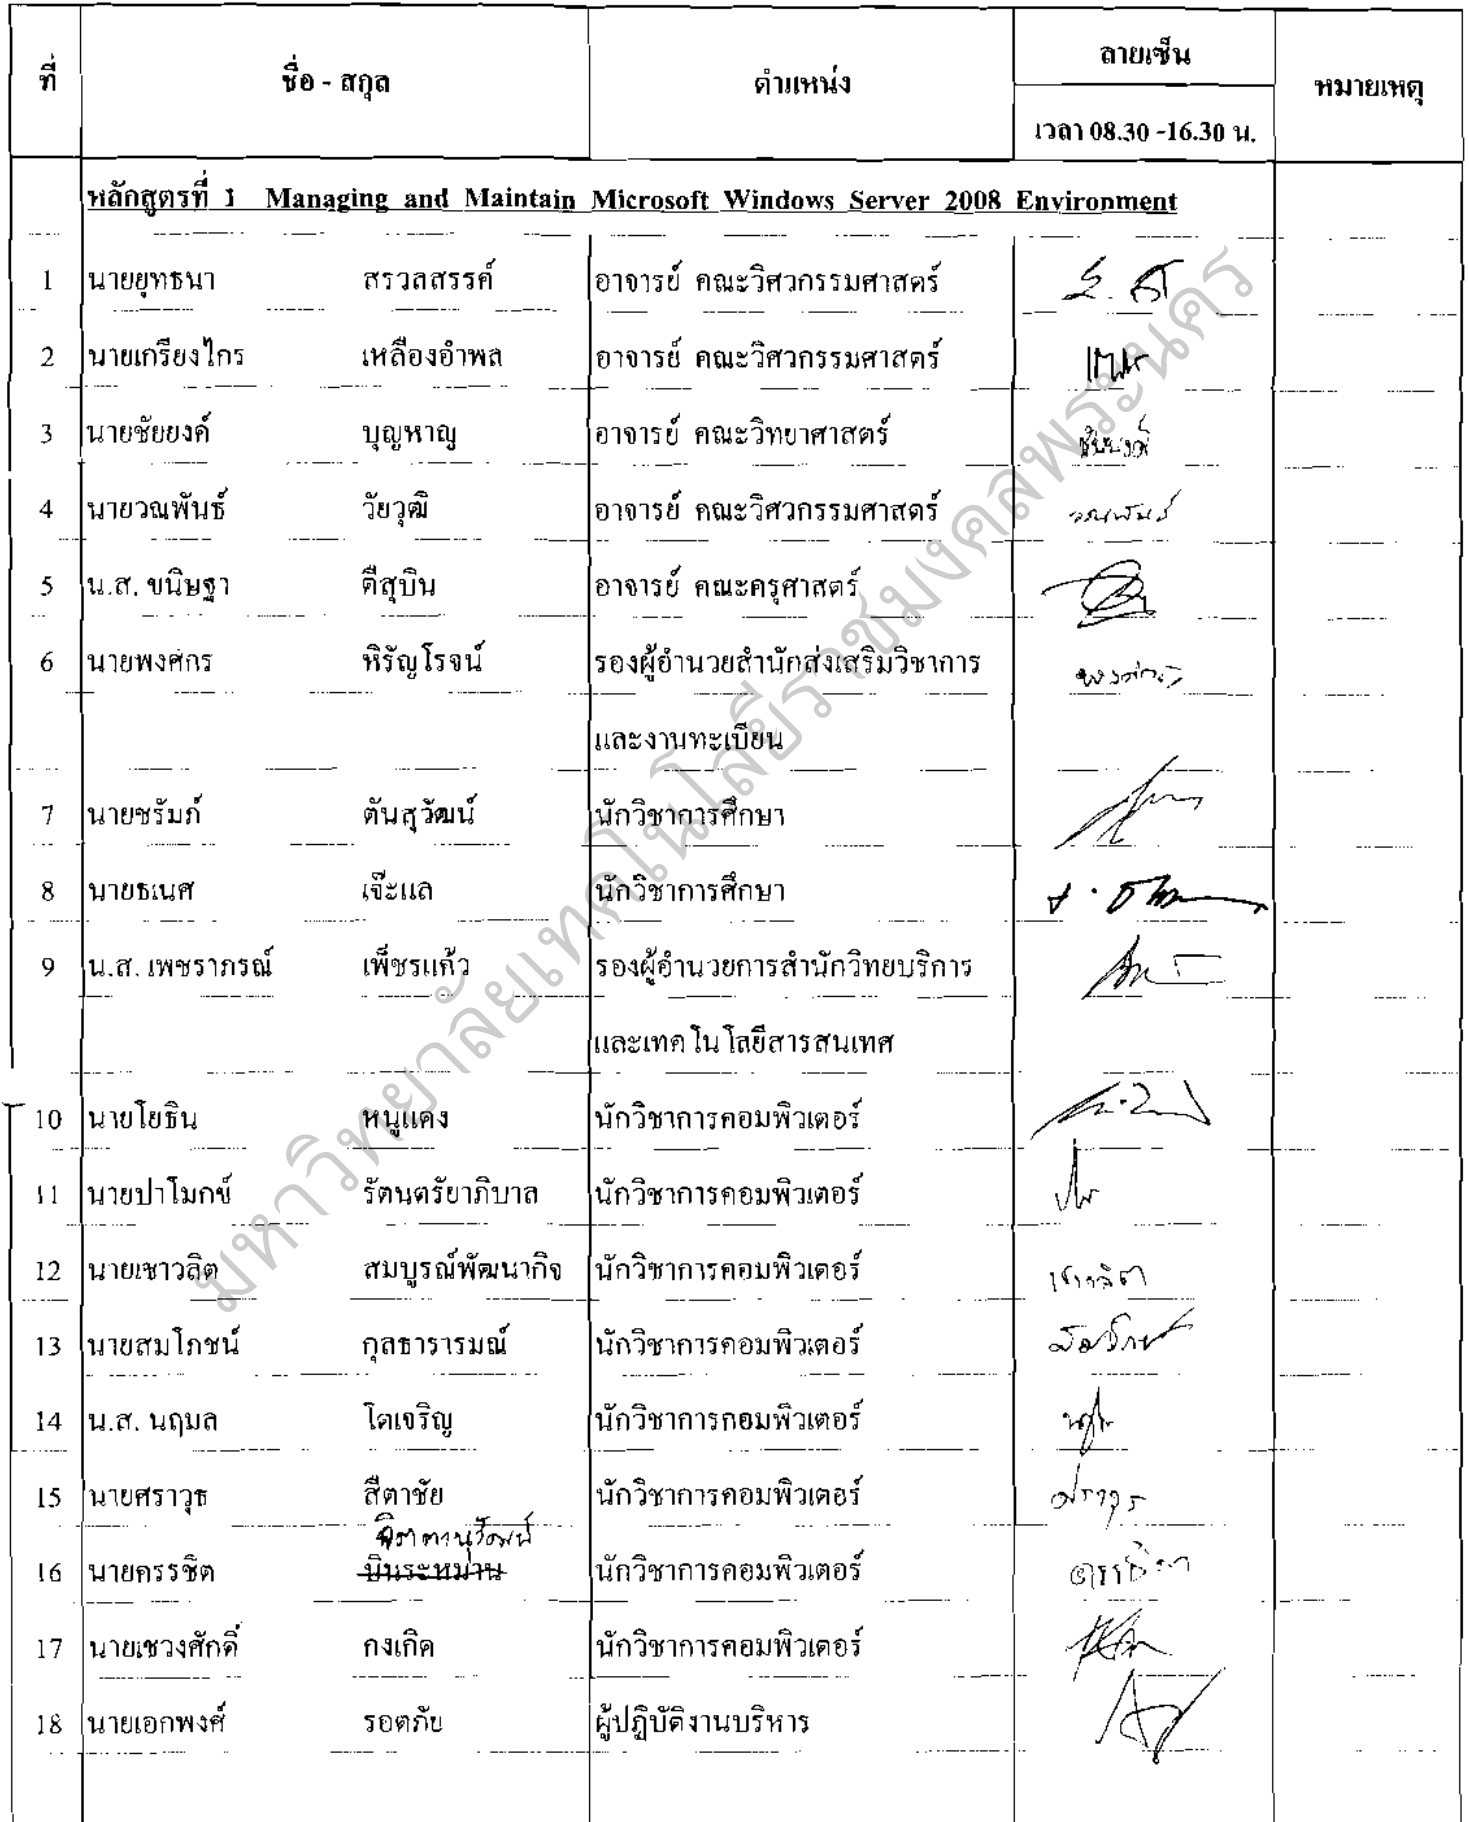 ที่ ชื่อ - สกุล ตำแหน่ง ลายเซ็น หมายเหตุ
เวลา 08.30 -16.30 น.
หลักสูตรที่ 1 Managing and Maintain Microsoft Windows Server 2008 Environment
1 นายยุทธนา สรวลสรรค์ อาจารย์ คณะวิศวกรรมศาสตร์
2 นายเกรียงไกร เหลืองอำพล อาจารย์ คณะวิศวกรรมศาสตร์
3 นายชัยยงค์ บุญหาญ อาจารย์ คณะวิทยาศาสตร์ ชัยยงค์
4 นายวณพันธ์ วัยวุฒิ อาจารย์ คณะวิศวกรรมศาสตร์ วณพันธ์
5 น.ส. ขนิษฐา ดีสุบิน อาจารย์ คณะครุศาสตร์
6 นายพงศกร หิรัญโรจน์ รองผู้อำนวยสำนักส่งเสริมวิชาการ พงศกร
และงานทะเบียน
7 นายชรัมภ์ ตันสุวัฒน์ นักวิชาการศึกษา
8 นายธเนศ เจ๊ะแล นักวิชาการศึกษา
9 น.ส. เพชราภรณ์ เพ็ชรแก้ว รองผู้อำนวยการสำนักวิทยบริการ
และเทคโนโลยีสารสนเทศ
10 นายโยธิน หนูแดง นักวิชาการคอมพิวเตอร์
11 นายปาโมกข์ รัตนตรัยาภิบาล นักวิชาการคอมพิวเตอร์
12 นายเชาวลิต สมบูรณ์พัฒนากิจ นักวิชาการคอมพิวเตอร์ เชาวลิต
13 นายสมโภชน์ กุลธารารมณ์ นักวิชาการคอมพิวเตอร์ สมโภชน์
14 น.ส. นฤมล โตเจริญ นักวิชาการคอมพิวเตอร์
15 นายศราวุธ สีตาชัย นักวิชาการคอมพิวเตอร์ ศราวุธ
16 นายครรชิต บินระหม่าน นักวิชาการคอมพิวเตอร์ ครรชิต
17 นายเชวงศักดิ์ กงเกิด นักวิชาการคอมพิวเตอร์
18 นายเอกพงศ์ รอตภัย ผู้ปฏิบัติงานบริหาร
มหาวิทยาลัยเทคโนโลยีราชมงคลพระนคร